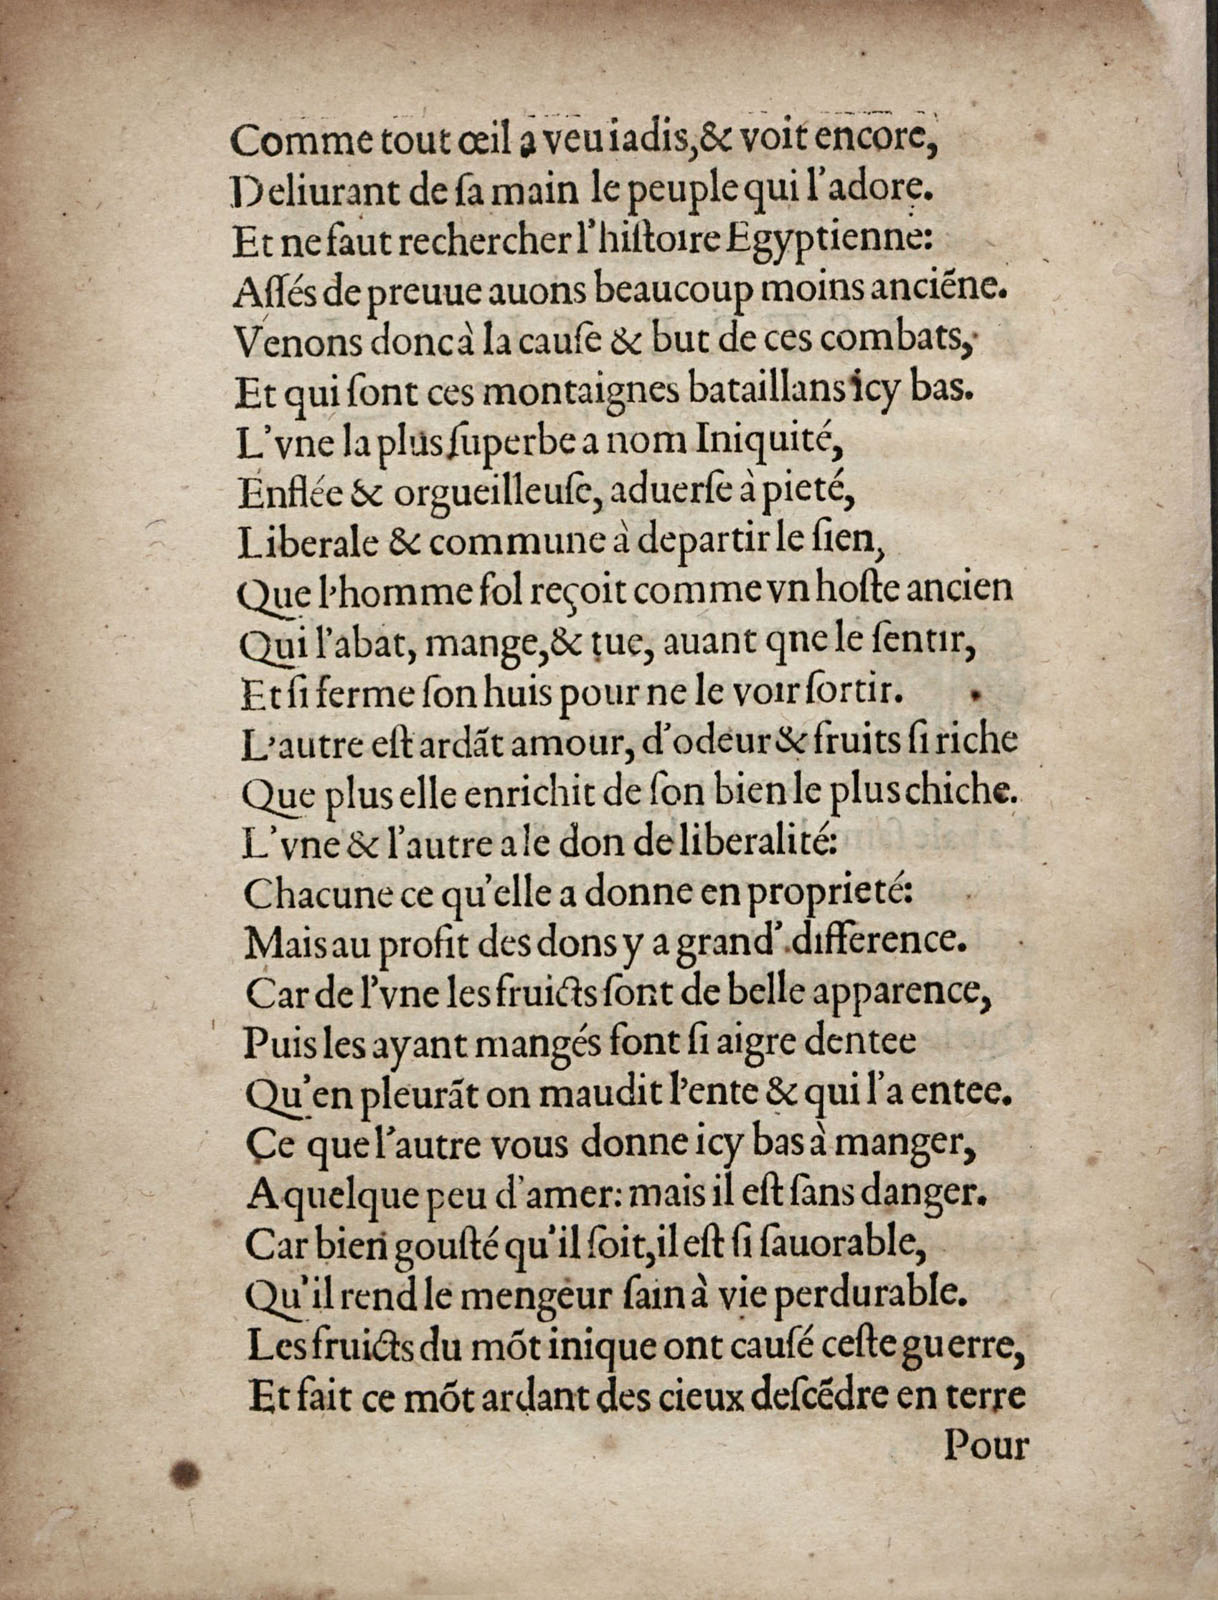 Comme tout œil a veu iadis,& voit encore,
Deliurant de ſa main le peuple qui l'adore.
Et ne faut rechercher l'hiſtoire Egyptienne:
Aſſés de preuue auons beaucoup moins anciẽne.
Venons donc à la cauſe & but de ces combats,
Et qui ſont ces montaignes bataillans icy bas.
L'vne la plus ſuperbe a nom Iniquité,
Enflée & orgueilleuſe, aduerſe à pieté,
Liberale & commune à departir le ſien,
Que l'homme fol reçoit comme vn hoſte ancien
Qui l'abat, mange,& tue, auant qne le ſentir,
Et ſi ferme ſon huis pour ne le voir ſortir.
L'autre eſt ardãt amour, d'odeur & fruits ſi riche
Que plus elle enrichit de ſon bien le plus chiche.
L'vne & l'autre a le don de liberalité:
Chacune ce qu'elle a donne en proprieté:
Mais au profit des dons y a grand' difference.
Car de l'vne les fruicts ſont de belle apparence,
Puis les ayant mangés font ſi aigre dentee
Qu'en pleurãt on maudit l'ente & qui l'a entee.
Ce que l'autre vous donne icy bas à manger,
A quelque peu d'amer: mais il eſt ſans danger.
Car bien gouſté qu'il ſoit,il eſt ſi ſauorable,
Qu'il rend le mengeur ſain à vie perdurable.
Les fruicts du mõt inique ont cauſé ceſte guerre,
Et fait ce mõt ardant des cieux deſcẽdre en terre
Pour